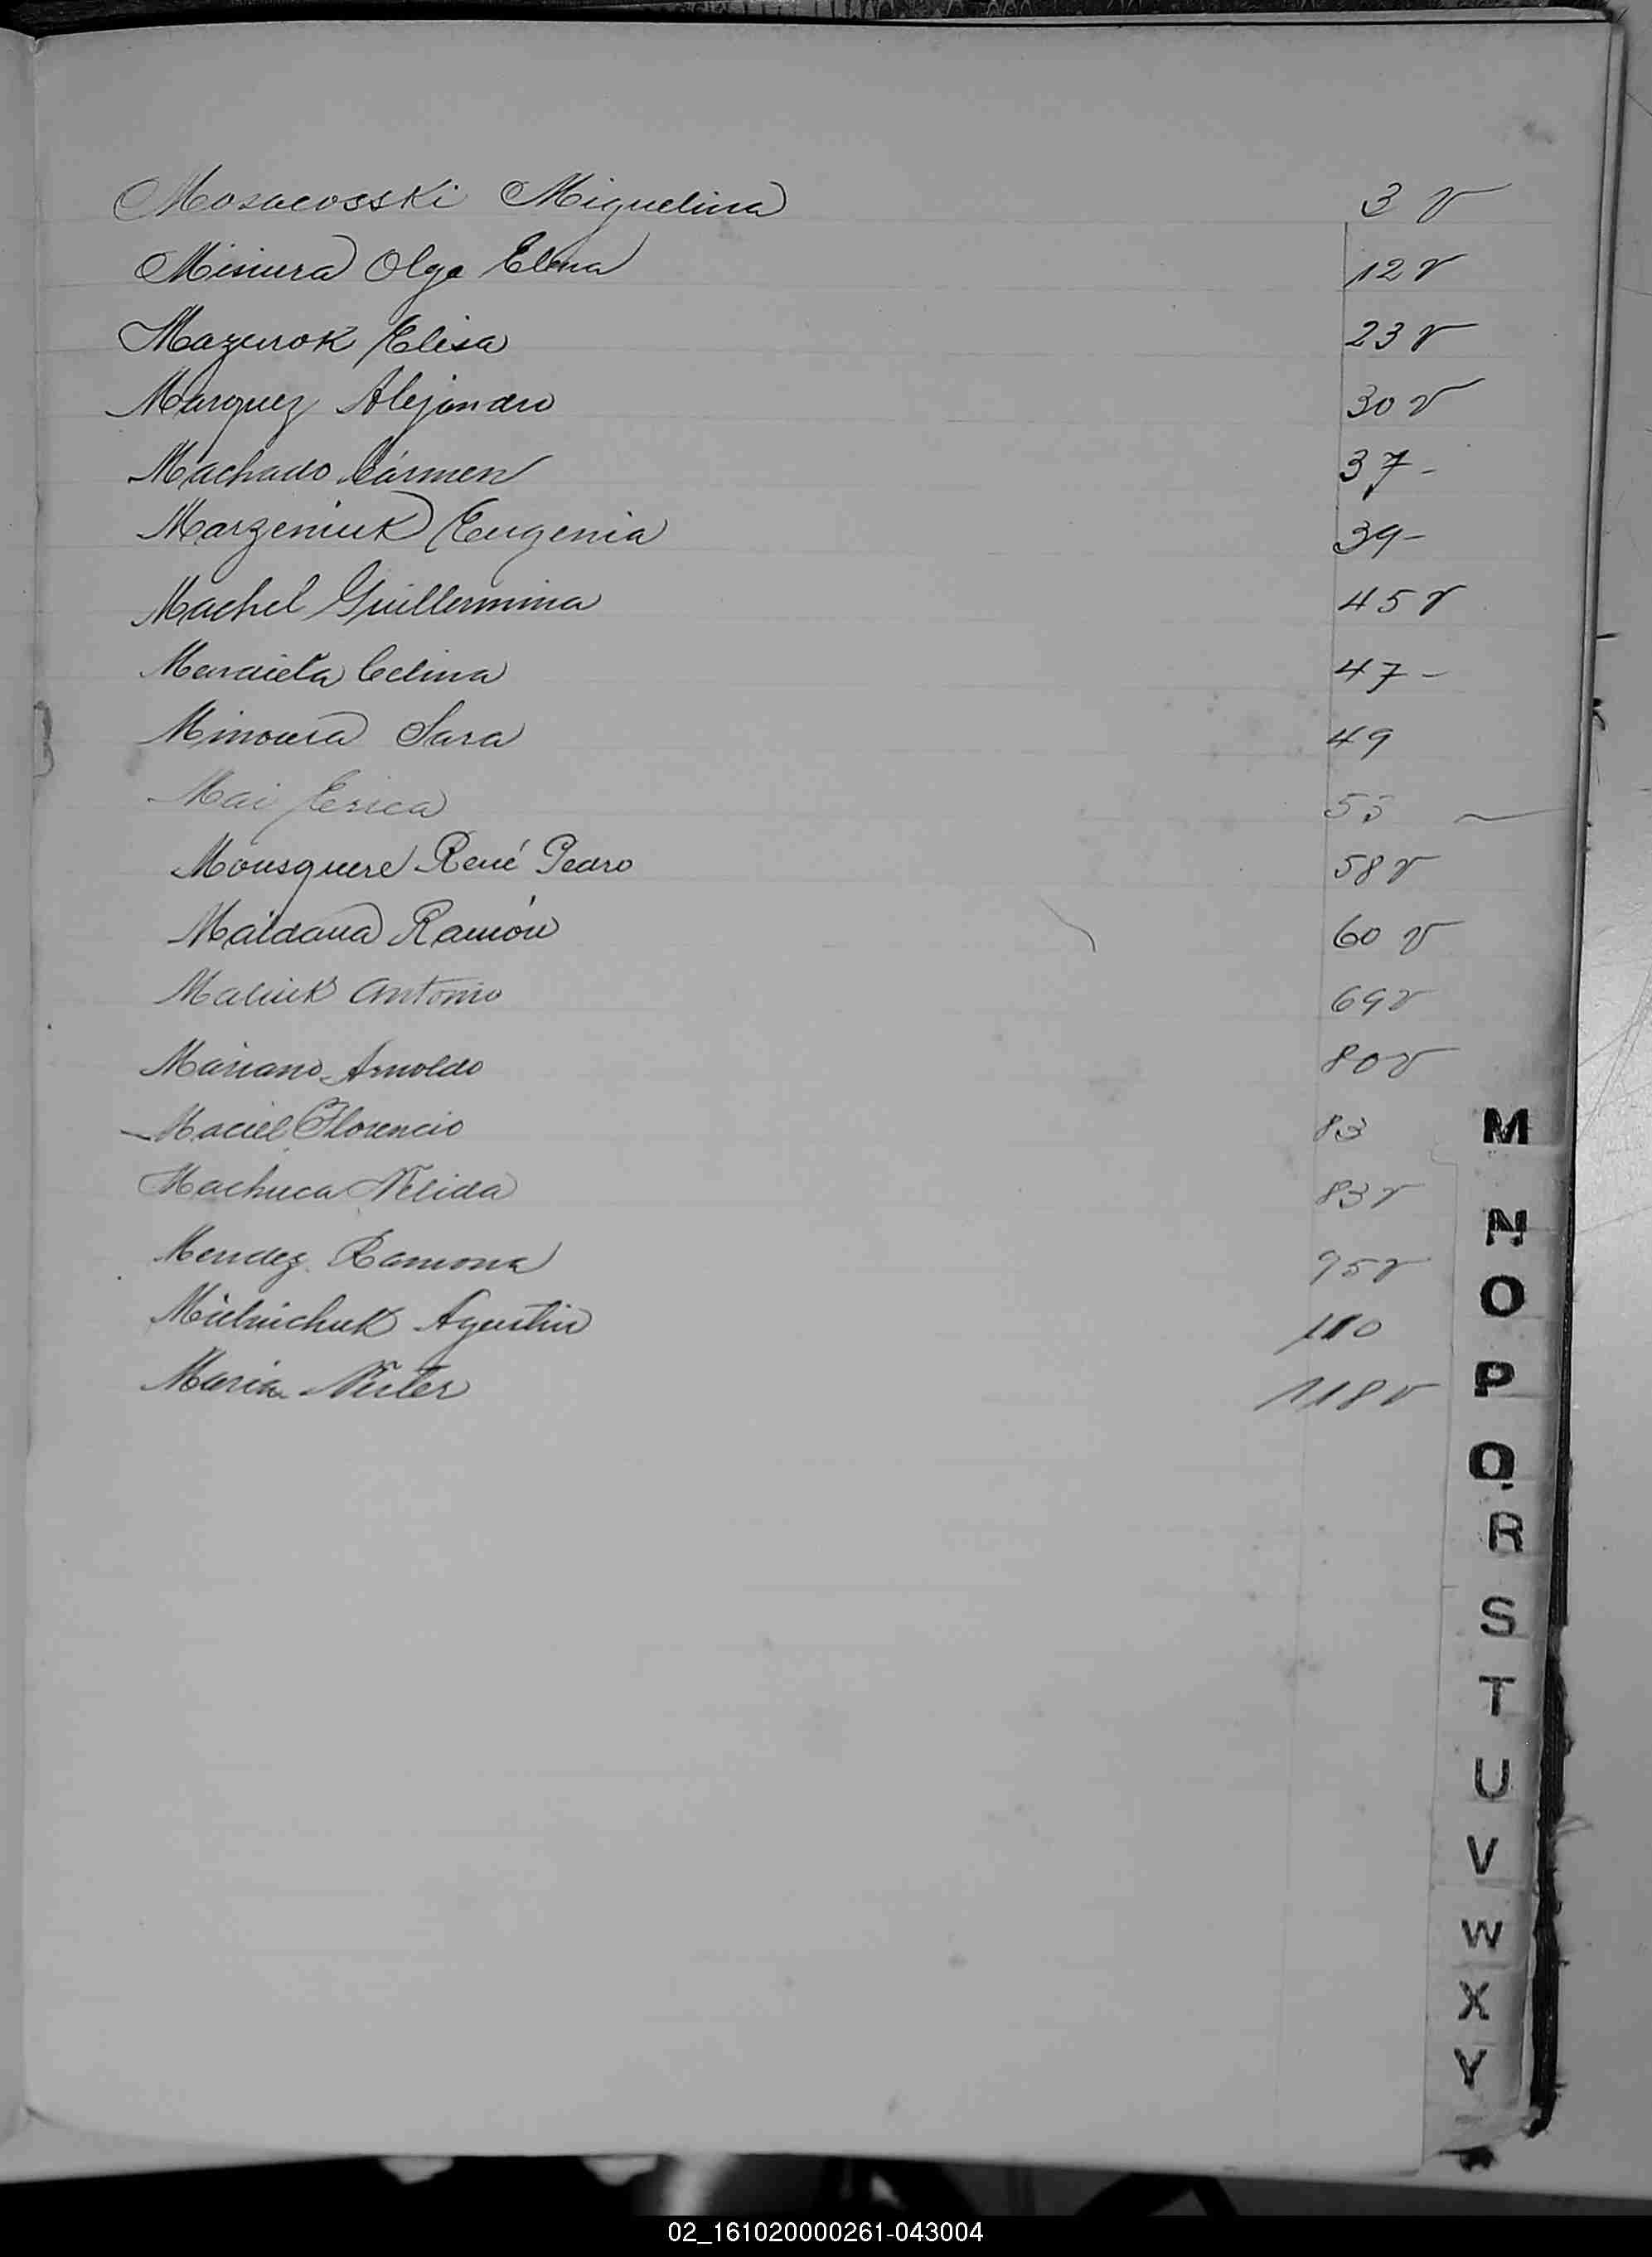 Mosacosski Miguelina 3 v
Misiura Olga Elena 12 v
Mazurok Elisa 23 v
Marquez Alejandro 30 v
Machado Cármen 37 -
Marzeniuk Eugenia 39 -
Machel Guillermina 45 v
Celina 47 -
Minoura Sara 49
Mai Erica 55
Mousquere René Pedro 58 v
Maidana Ramón 60 v
Maliuk Antonio 69 v
Mariano Arnoldo 80 v
Maciel Florencio 83
Machuca Nelida 83 v
Mendez Ramona 95 v
Mielnichuk Agustin 110
Maria 118 v
M
N
O
P
Q
R
S
T
U
V
W
X
Y
02_161020000261-043004